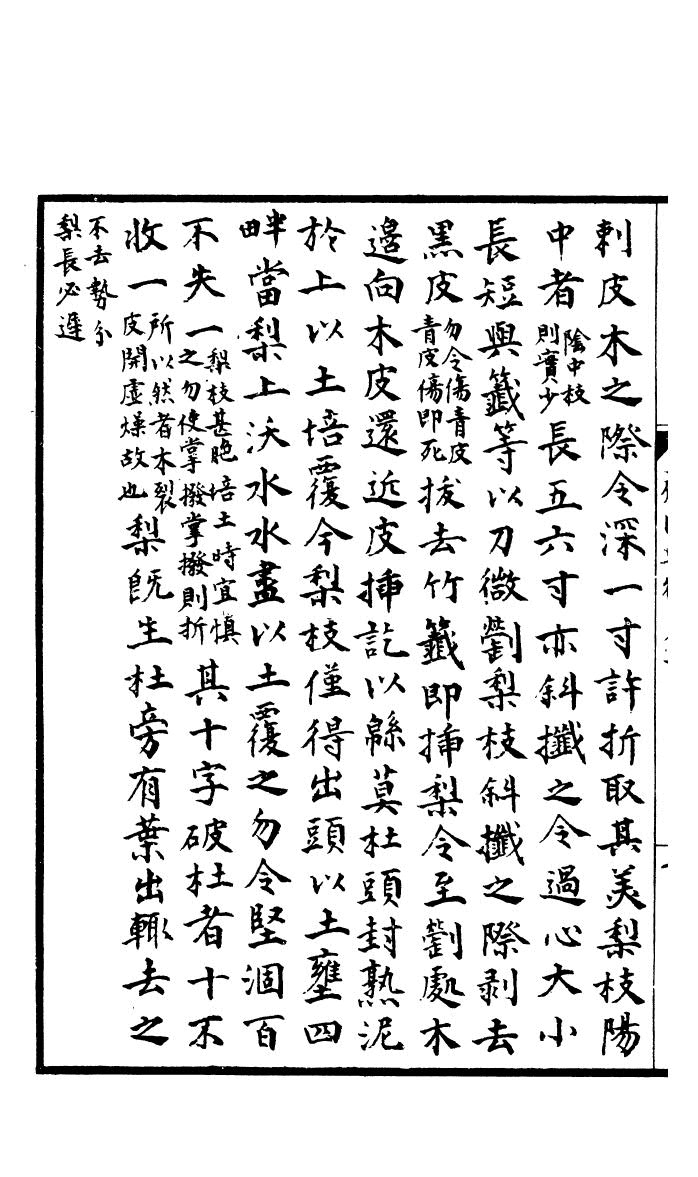 刺皮木之際令深一寸許折取其美梨枝陽
中者陰中枝則實少長五六寸亦斜攕之令過心大小
長短與籤等以刀微𠠫梨枝斜攕之際剥去
黑皮勿令傷青皮青皮傷即死拔去竹籤即揷梨令至𠠫處木
邉向木皮還近皮揷訖以緜莫杜頭封熟泥
於上以土培覆令梨枝僅得出頭以土壅四
畔當梨上沃水水盡以土覆之勿令堅涸百
不失一梨枝甚脆培土時宜慎之勿使掌撥掌撥則折其十字破杜者十不
收一所以然者木裂皮開虛燥故也梨既生杜旁有葉出輙去之
不去勢分梨長必遲